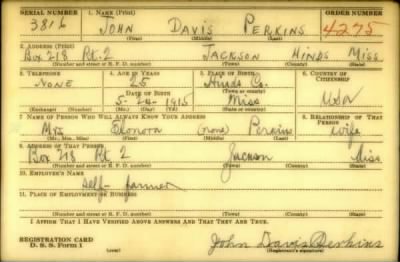 SERIAL NUMBER 1. NAME (Print) ORDER NUMBER
3816 JOHN DAVIS PERKINS 4275
(First) (Middle) (Last)
2. ADDRESS (Print)
Box 218 Rt. 2 JACKSON HINDS MISS
(Number and street or R. F. D. number) (Town) (County) (State)
3. TELEPHONE 4. AGE IN YEARS 5. PLACE OF BIRTH 6. COUNTRY OF CITIZENSHIP
NONE 25 Hinds Co.
DATE OF BIRTH (Town or county)
5-24-1915 Miss USA
(Exchange) (Number) (Mo.) (Day) (Yr.) (State or country)
7. NAME OF PERSON WHO WILL ALWAYS KNOW YOUR ADDRESS 8. RELATIONSHIP OF THAT PERSON
Mrs (none) Perkins wife
(Mr., Mrs., Miss) (First) (Middle) (Last)
9. ADDRESS OF THAT PERSON
Box 218 Rt. 2 Jackson Miss
(Number and street or R. F. D. number) (Town) (County) (State)
10. EMPLOYER'S NAME
self-farmer
11. PLACE OF EMPLOYMENT OR BUSINESS
(Number and street or R. F. D. number) (Town) (County) (State)
I AFFIRM THAT I HAVE VERIFIED ABOVE ANSWERS AND THAT THEY ARE TRUE.
REGISTRATION CARD
D. S. S. Form 1 John Davis Perkins
(Registrant's signature)